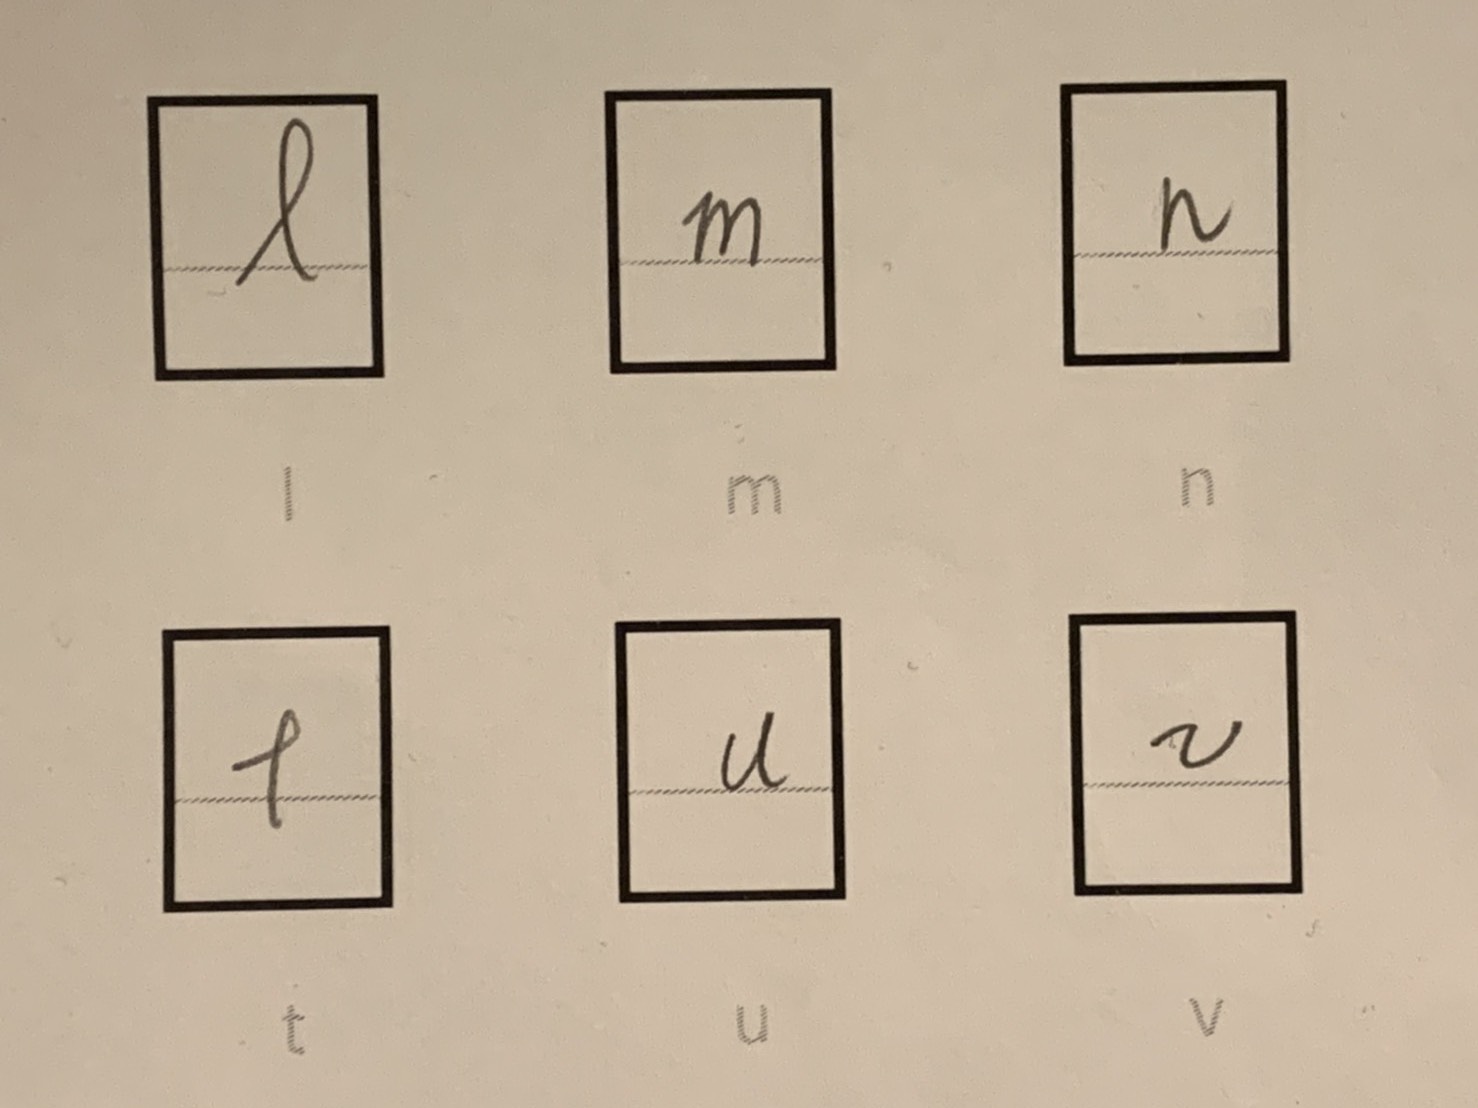 l m n
l m n
t u v
t u v